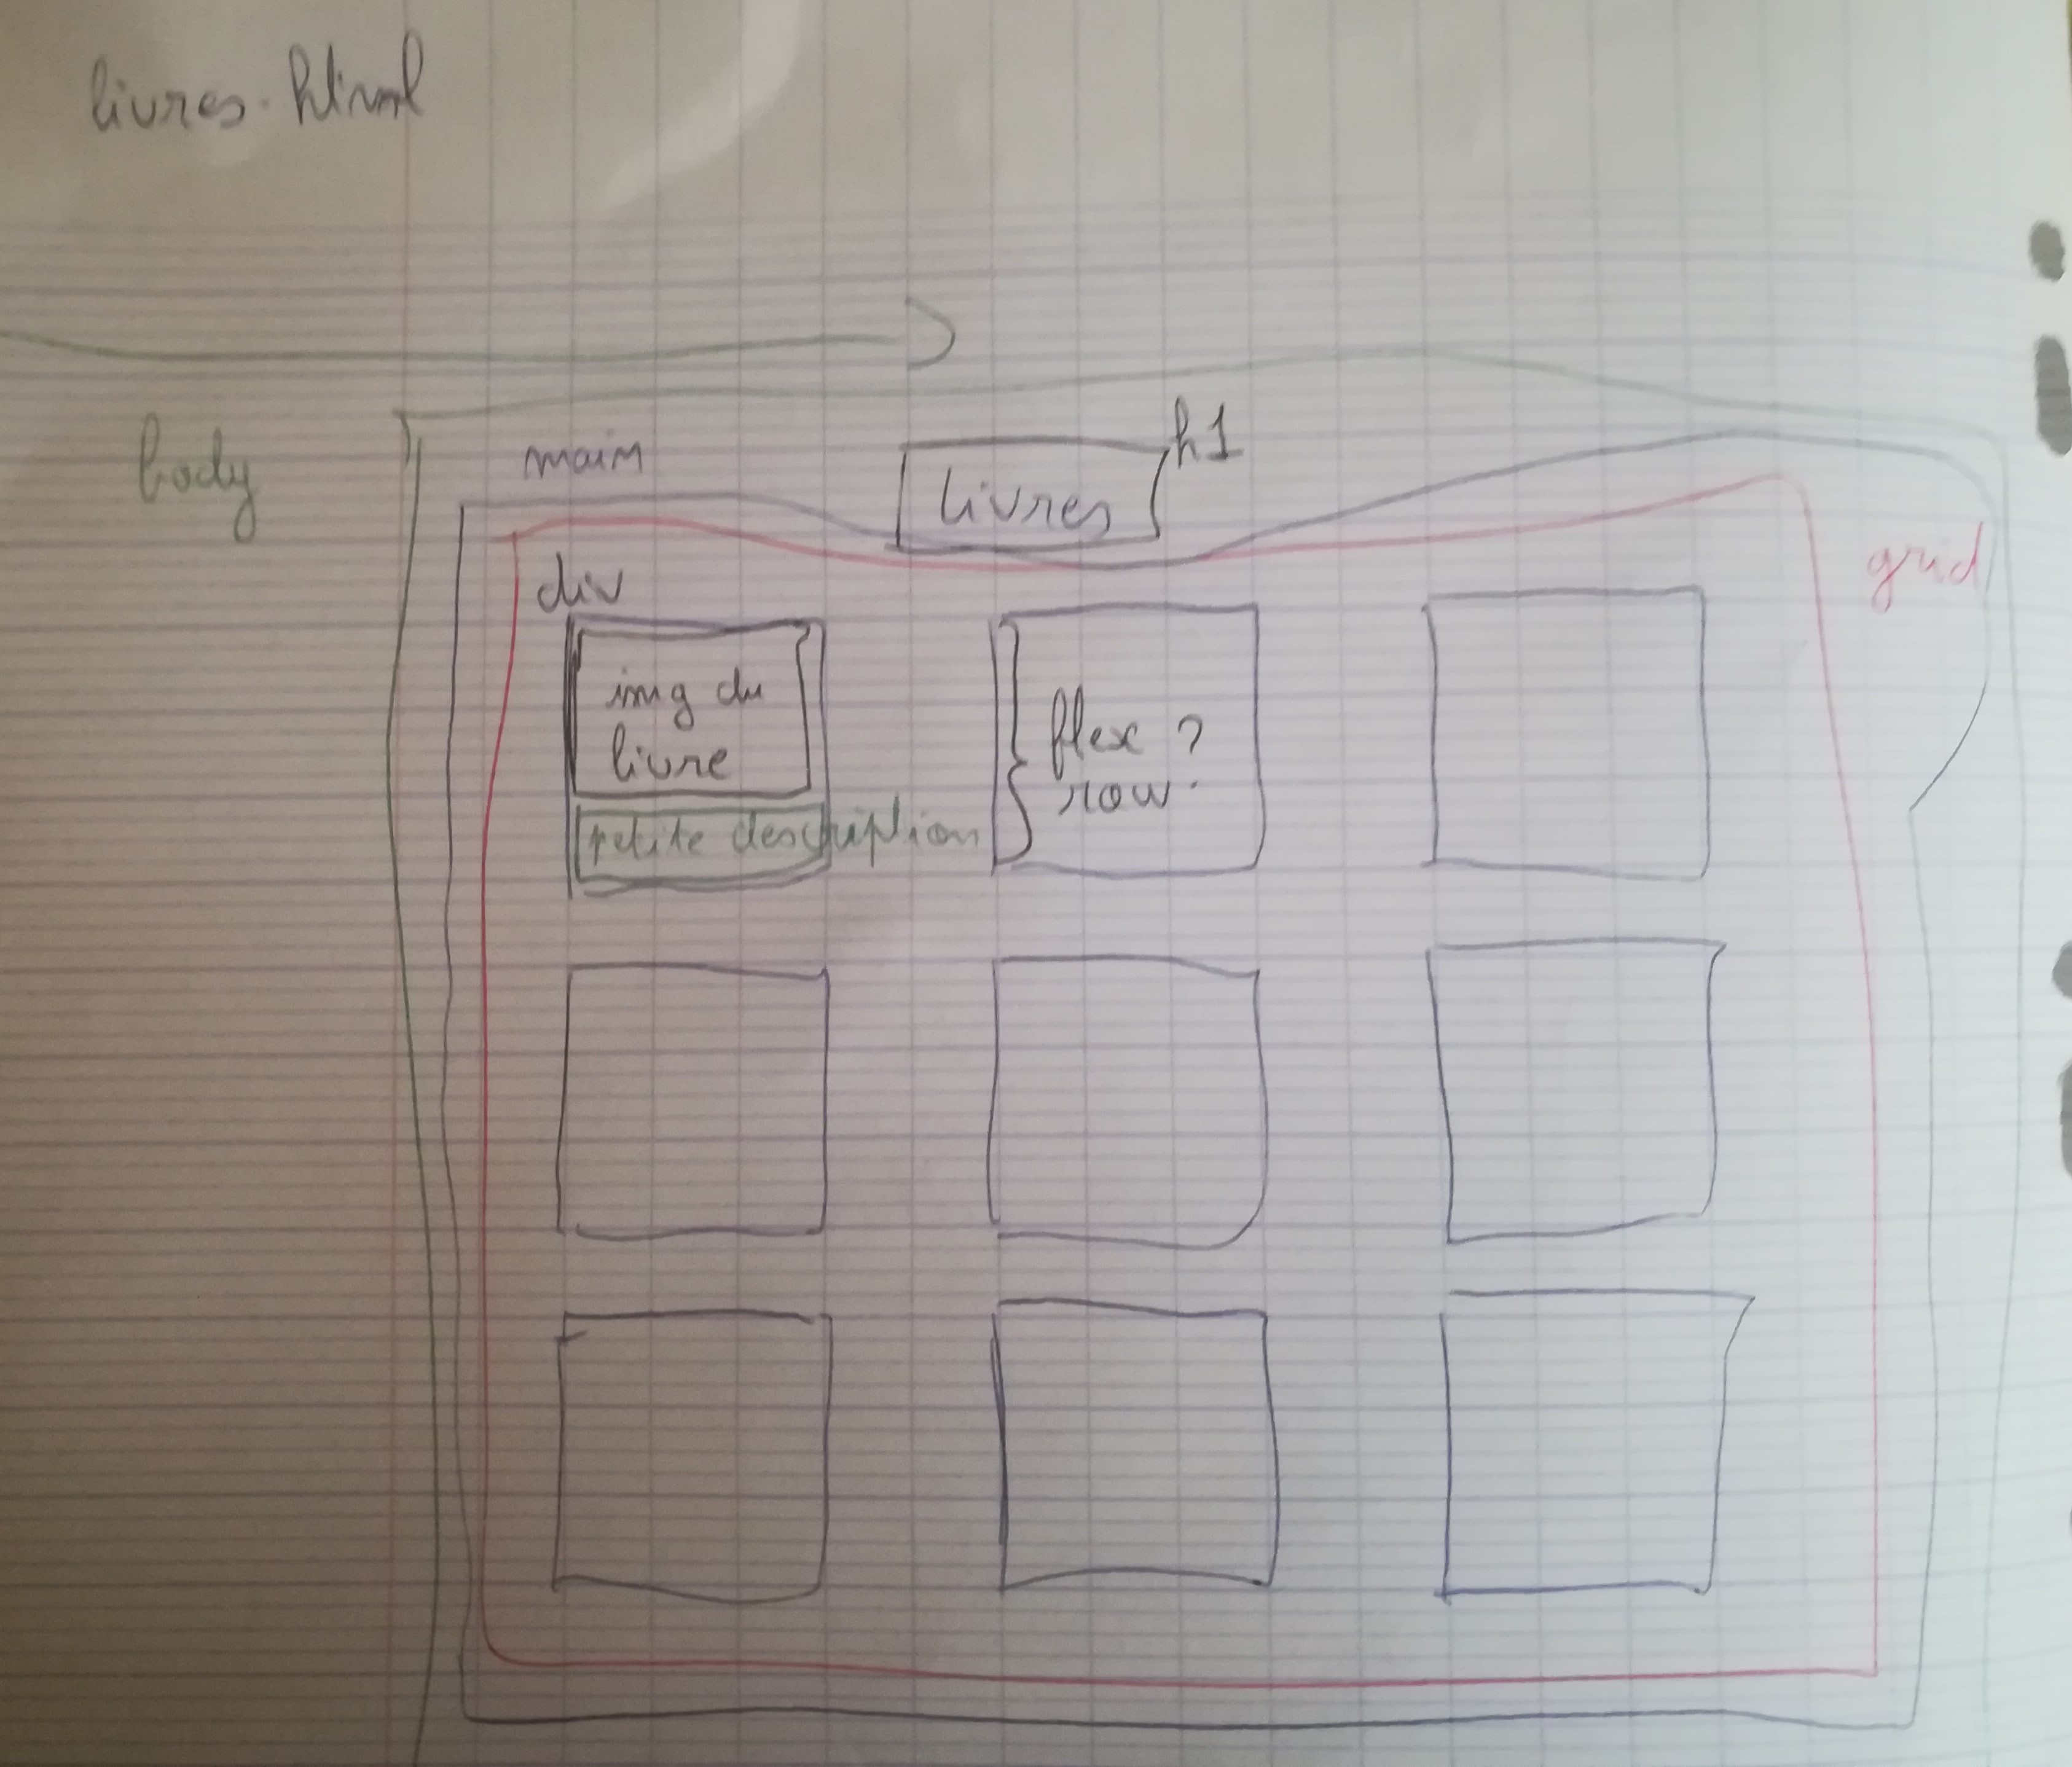 livres.html
body
main
h1
livres
grid
div
img du
livre
petite description
flex ?
row